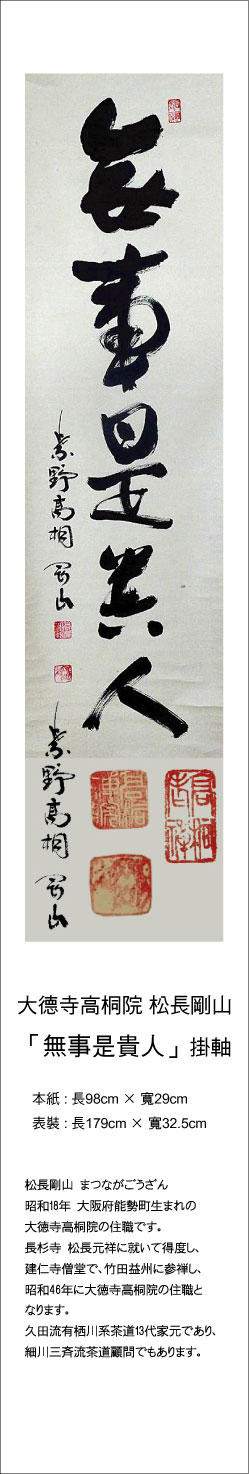 無事是貴人
紫野高桐 剛山
紫野高桐 剛山
大徳寺高桐院 松長剛山
「無事是貴人」掛軸
本紙 : 長98cm × 寬29cm
表裝 : 長179cm × 寬32.5cm
松長剛山 まつながごうざん
昭和18年 大阪府能勢町生まれの
大徳寺高桐院の住職です。
長杉寺 松長元祥に就いて得度し、
建仁寺僧堂で、竹田益州に参禅し、
昭和46年に大徳寺高桐院の住職と
なります。
久田流有栖川系茶道13代家元であり、
細川三斉流茶道顧問でもあります。